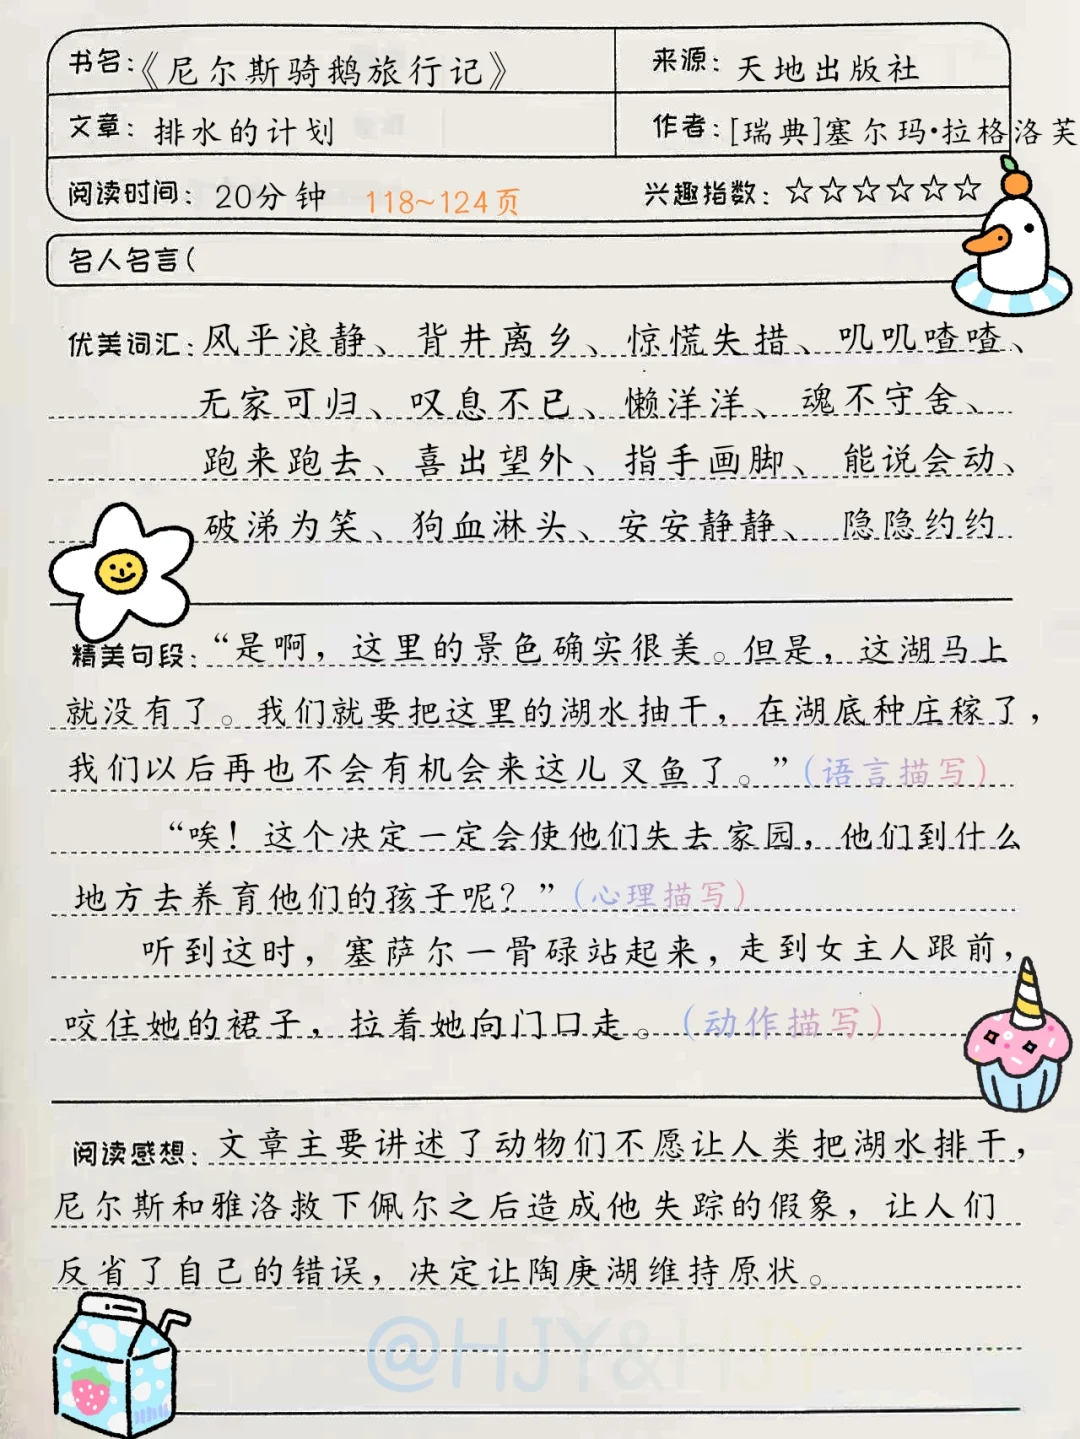 书名:《尼尔斯骑鹅旅行记》 来源: 天地出版社
文章: 排水的计划 作者:[瑞典]塞尔玛·拉格洛芙
阅读时间: 20分钟 118~124页 兴趣指数: ☆☆☆☆☆☆
名人名言(
优美词汇: 风平浪静、背井离乡、惊慌失措、叽叽喳喳、
无家可归、叹息不已、懒洋洋、魂不守舍、
跑来跑去、喜出望外、指手画脚、能说会动、
破涕为笑、狗血淋头、安安静静、隐隐约约
精美句段: “是啊，这里的景色确实很美。但是，这湖马上
就没有了。我们就要把这里的湖水抽干，在湖底种庄稼了，
我们以后再也不会有机会来这儿叉鱼了。”(语言描写)
“唉！这个决定一定会使他们失去家园，他们到什么
地方去养育他们的孩子呢？”(心理描写)
听到这时，塞萨尔一骨碌站起来，走到女主人跟前，
咬住她的裙子，拉着她向门口走。(动作描写)
阅读感想: 文章主要讲述了动物们不愿让人类把湖水排干，
尼尔斯和雅洛救下佩尔之后造成他失踪的假象，让人们
反省了自己的错误，决定让陶庚湖维持原状。
@HJY&HJY